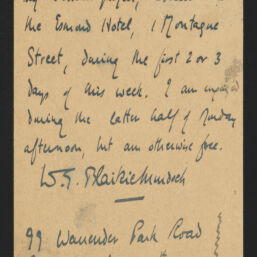 the Esmond Hotel, 1 Montague
Street, during the first 2 or 3
days of this week. I am engaged
during the latter half of Monday
afternoon, but am otherwise free.
W. G. Blaikie Murdoch
99 Warrender Park Road